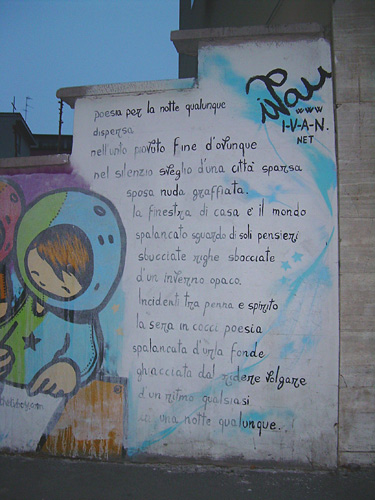 ivan
www
I-V-A-N.
NET
poesia per la notte qualunque
dispersa
nell'urlo piovuto fine d'ovunque
nel silenzio sveglio d'una città sparsa
sposa nuda graffiata.
la finestra di casa e' il mondo
spalancato sguardo di soli pensieri
sbucciate righe sbocciate
d'un inverno opaco.
Incidenti tra penna e spirito
la sera in cocci poesia
spalancata d'urla fonde
ghiacciata dal ridere volgare
d'un ritmo qualsiasi
una notte qualunque...